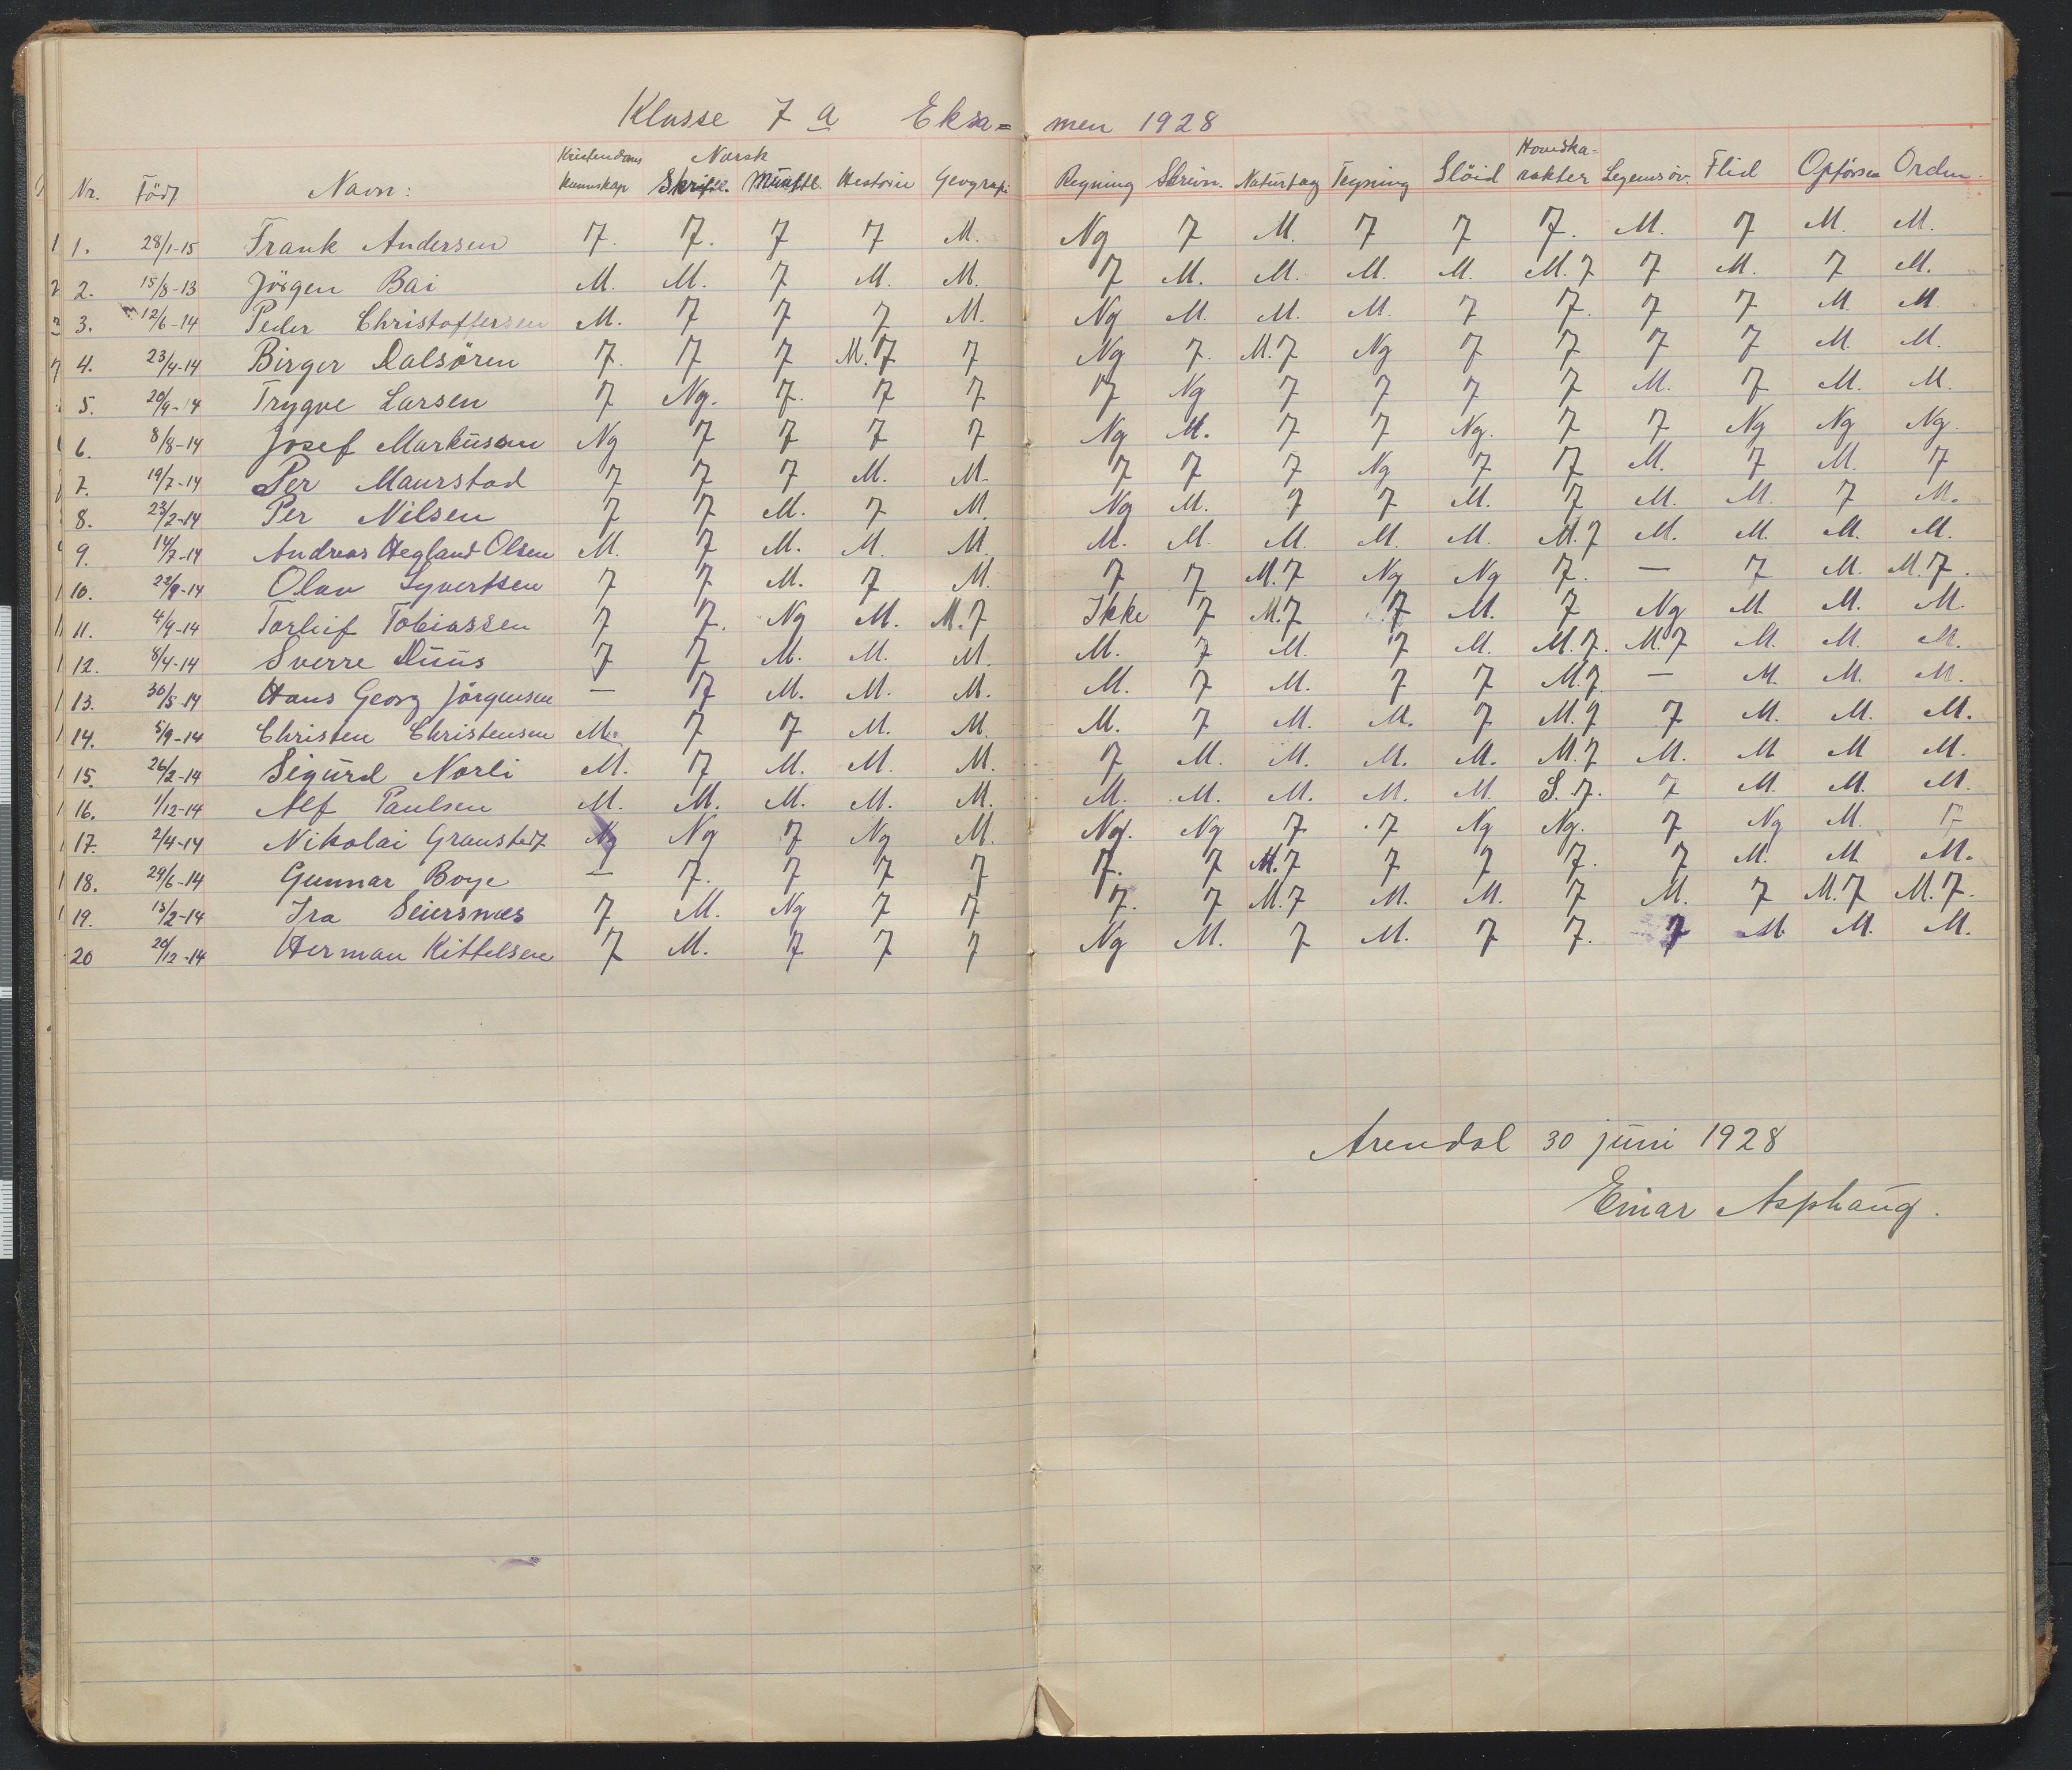 Klasse 7 a Eksa= men 1928
Nr. Född Navn: Kristendoms kunnskap Norsk Skriftl. Muntl. Historie Geografi Regning Skrivn. Naturfag Tegning Slöid Hovedka= rakter Legemsöv. Flid Opförsel Orden.
1. 28/1-15 Frank Andersen T. T. T T M. Ng T M. T T T. M. T M. M.
2. 15/8-13 Jörgen Bai M. M. T M. M. T M. M. M. M. M.T T M. T M.
3. 12/6-14 Peder Christoffersen M. T T T M. Ng M. M. M. T T. T T M. M.
4. 23/4-14 Birger Dalsören T. T T M.T T Ng T. M.T Ng T T T T M. M.
5. 20/9-14 Trygve Larsen T Ng. T. T T T Ng T T T T M. T M. M.
6. 8/8-14 Josef Markussen Ng T T T T Ng M. T T Ng. T T Ng Ng Ng.
7. 19/7-14 Per Maurstad T T T M. M. T T T Ng T T M. T M. T
8. 23/2-14 Per Nilsen T T M. T M. Ng M. T T M. T M. M. T M.
9. 14/7-14 Andreas Hegland Olsen M. T M. M. M. M. M. M. M. M. M.T M. M. M. M.
10. 23/9-14 Olav Syvertsen T T M. T M. T T M.T Ng Ng T. — T M. M.T.
11. 4/9-14 Torleif Tobiassen T T. Ng M. M.T Ikke T M.T T M. T Ng M. M. M.
12. 8/4-14 Sverre Duus T T M. M. M. M. T M. T M. M.T. M.T M. M. M.
13. 30/5-14 Hans Georg Jörgensen — T M. M. M. M. T M. T T M.T. — M. M. M.
14. 5/9-14 Christen Christensen M. T T M. M. M. T M. M. T M.T T M. M. M.
15. 26/2-14 Sigurd Norli M. T M. M. M. T M. M. M. M. M.T M. M M M.
16. 1/12-14 Alf Paulsen M. M. M. M. M. M. M. M. M. M S.T. T M. M. M.
17. 2/4-14 Nikolai Granstedt Ng Ng T Ng M. Ng. Ng T T Ng Ng. T Ng M. T
18. 29/6-14 Gunnar Boye — T. T T T T. T M.T T T T. T M. M M.
19. 15/2-14 Ira Seiersnæs T M. Ng T T T. T M.T M. M. T M. T M.T M.T.
20 20/12-14 Herman Kittelsen T M. T T T Ng M. T M. T T. T M M. M.
Arendal 30 juni 1928
Einar Asphaug.